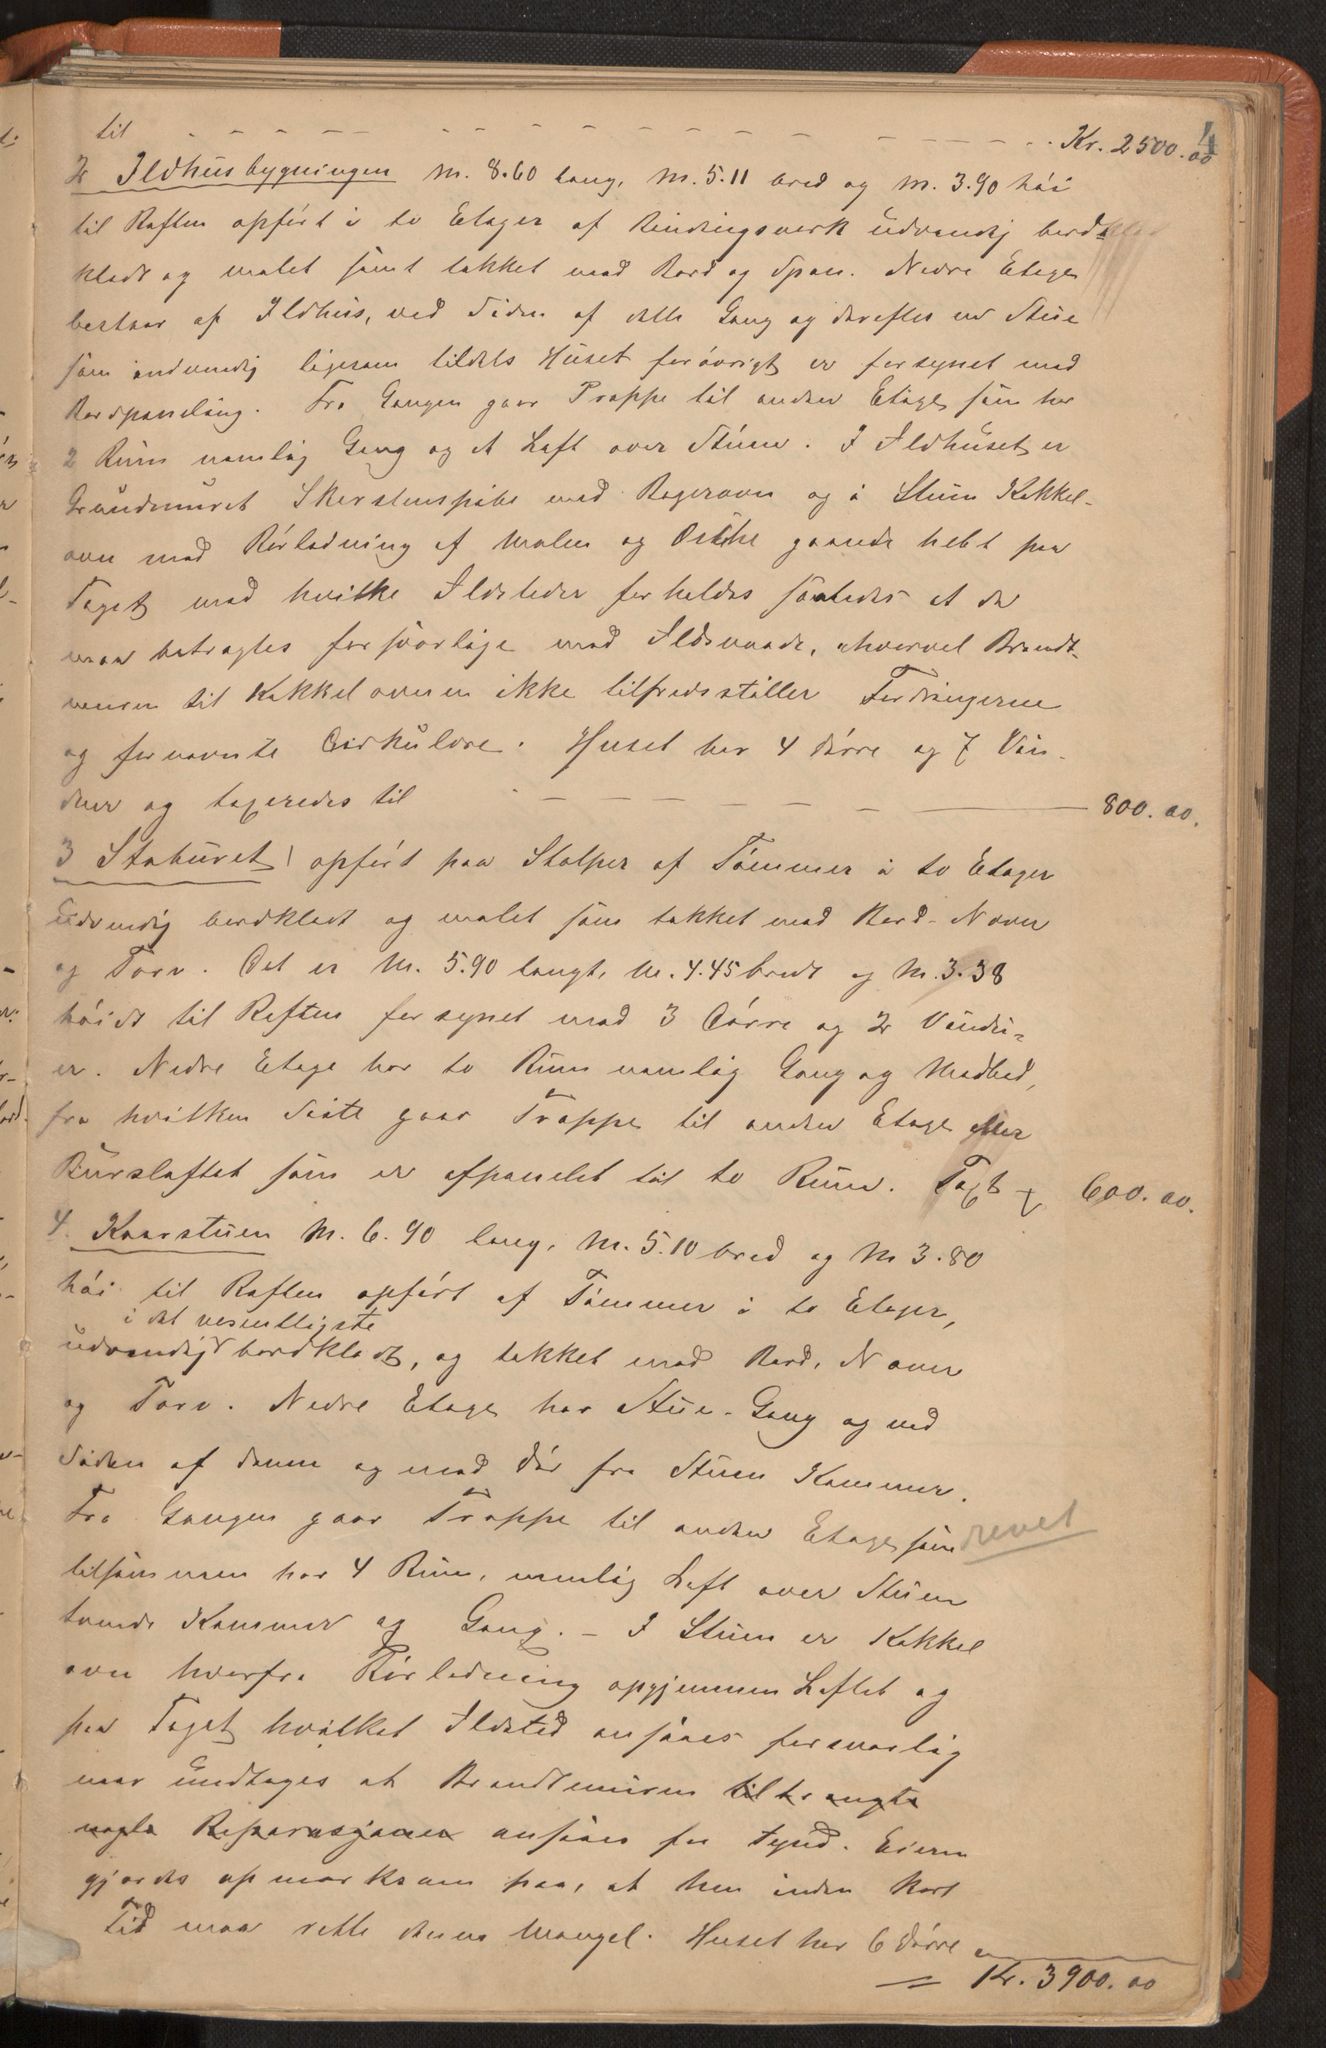 4
til - - - - - - - - - - - - - - - - Kr. 2500.00
2 Ildhusbygningen M. 8.60 lang, M. 5.11 bred og M. 3.90 höi
til Raften opfört i to Etager af Bindingsverk udvendig bord-
klædt og malet samt tækket med Bord og Spon. Nedre Etage
bestaar af Ildhus, ved Siden af dette Gang og derefter en Stue
som indvendig ligesom tildels Huset forövrigt er forsynet med
Bordpaneling. Fra Gangen gaar Trappe til anden Etage som har
2 Rum nemlig Gang og et Loft over Stuen. I Ildhuset er
Grundmuret Skorstenspibe med Bagerovn og i Stuen Kakkel-
ovn med Rörledning af Malm og gaaende helt paa
Taget med hvilke Ildsteder forholdes saaledes at de
maa betragtes forsvarlige mod Ildsvaade, ihvorvel Brandt-
muren til Kakkelovnen ikke tilfredsstiller Fordringerne
og fornævnte Cirkulære. Huset har 4 Dörre og 7 Vin-
duer og taxeredes til - - - - - - - 800.00.
3 Staburet opfört paa Stolper af Tömmer i to Etager
udvendig bordklædt og malet som tækket med Bord - Næver
og Torv. Det er M. 5.90 langt, M. 4.45 bredt og M. 3.38
höidt til Raften forsynet med 3 Dörre og 2 Vindu-
er. Nedre Etage har to Rum nemlig Gang og Madbod,
fra hvilken Siste gaar Trappe til anden Etage eller
Bursloftet som er afpanelet til to Rum. Taxt 600.00.
4. Kaarstuen M. 6.90 lang, M. 5.10 bred og M 3.80
höi til Raften opfört af Tömmer i to Etager,
i det vesentligste
udvendig bordklædt, og tækket med Bord, Næver
og Torv. Nedre Etage har Stue - Gang og ved
Siden af denne og med Dör fra Stuen Kammer.
Fra Gangen gaar Trappe til anden Etage som revet
tilsammen har 4 Rum, nemlig Loft over Stuen
tvende Kammer og Gang. - I Stuen er Kakkel
ovn hvorfra Rörledning opgjennem Loftet og
paa Taget hvilket Ildsted ansaaes forsvarlig
naar undtages at Brandtmuren tiltrængte
nogle Reparasjoner ansaaes for tynd. Eieren
gjordes opmærksom paa, at han inden kort
Tid maa rette denne Mangel. Huset har 6 Dörre
= Kr. 3900.00